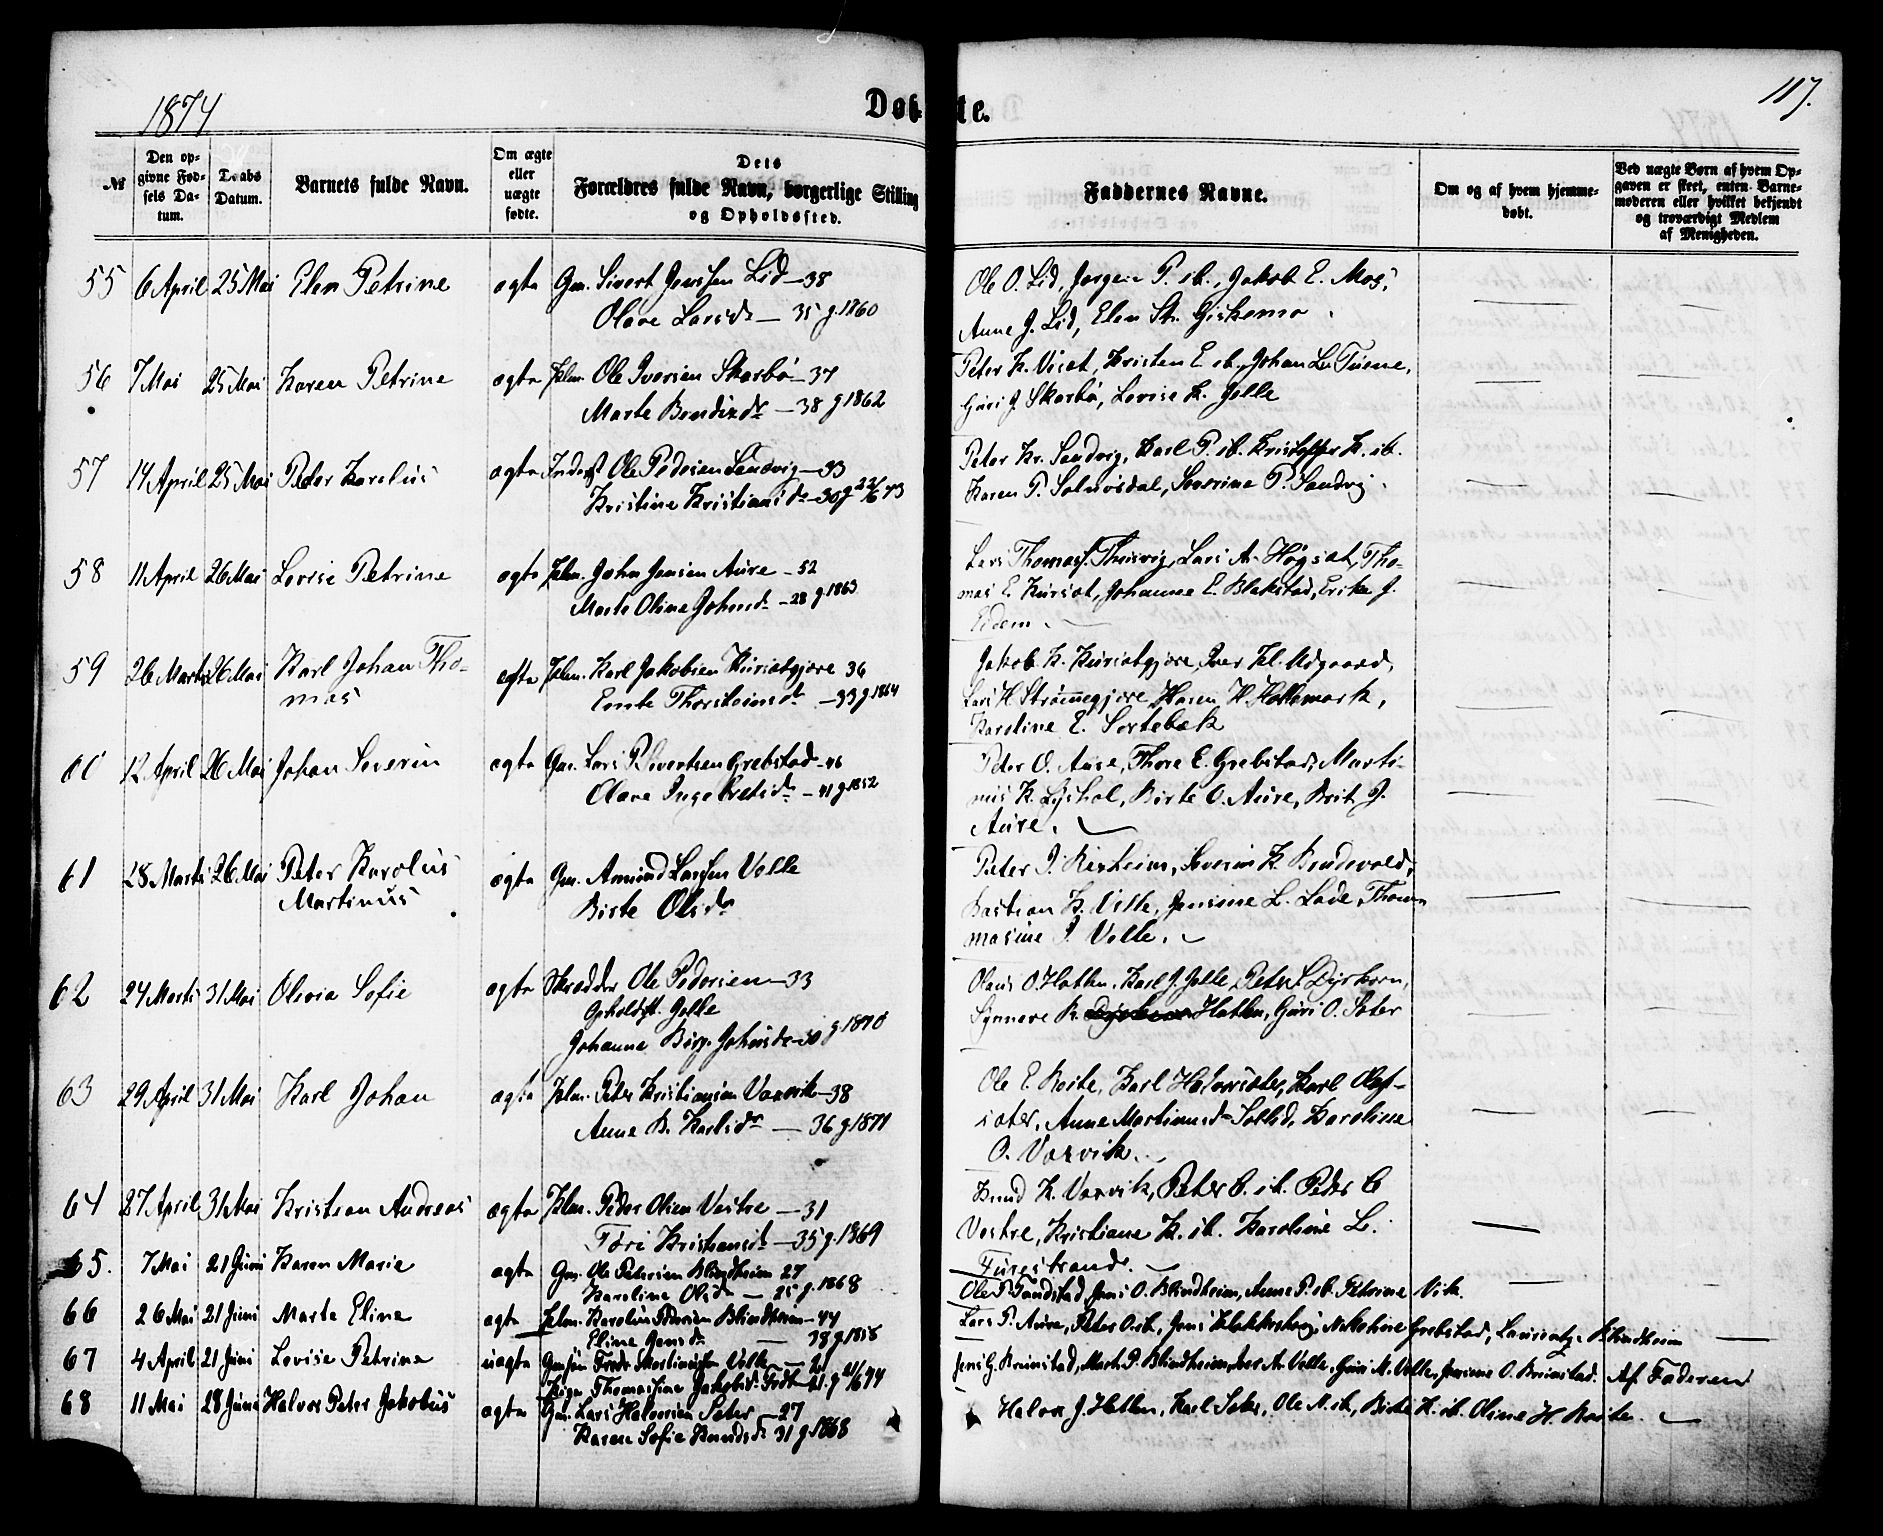 1874
Døbte.
117.
№
Den opgivne Fødsels Datum.
Daabs Datum.
Barnets fulde Navn.
Om ægte eller uægte fødte.
Dets Forældres fulde Navn, borgerlige Stilling og Opholdssted.
Faddernes Navne.
Om og af hvem hjemmedøbt.
Ved uægte Børn af hvem Opgaven er skeet, enten Barnemoderen eller hvilket bekjendt og troværdigt Medlem af Menigheden.
55 6 April 25 Mai Elen Petrine ægte Gm. Sivert Lid – 38
Olave Larsdr – 35 g. 1860
Ole O. Lid, Jørgen P. ib., Jakob E. Mo
Anne J. Lid, Elen St. Giskemo
56 7 Mai 25 Mai Karen Petrine ægte Ole Iversen Skarbø – 37
Marte Bendixdr – 38 g. 1862
Peter K. Viset, Kristen E ib., Johan L.
Guri J Skarbø, Lovise K. Gjelle
57 14 April 25 Mai Peter Karolus ægte Inderst Ole Pedersen Sandvig – 33
Kristine Kristiansdr – 30 g. 22/6 73
Peter Kr. Sandvig, Karl P. ib. Kristoffer K. ib.
Karen P. Solnørdal, Severine P. Sandvig
58 11 April 26 Mai Lovise Petrine ægte John Jensen Aure – 52
Marte Oline Johnsdr – 28 g. 1863
Lars Thomass. Lars A. Høgset, Tho-
mas E Kurset, Johanne E. Blakstad, Erika J.
Eidem
59 26 Marts 26 Mai Karl Johan Tho-
mas ægte Karl Jakobsen Kursetgjære 36
Emte Thorsteinsdr – 33 g. 1864
Jakob K. Kursetgjære, Iver Kl. Ødgaard,
Lars H Strømmegjære, Karen H. Hollemark,
Karoline E. Sortebæk
60 12 April 26 Mai Johan Severin ægte Gm. Lars P. Sivertsen Grebstad – 46
Olave Ingebretsdr – 41 g. 1852
Peter O. Aure, Thore E. Grebstad, Marti-
nus K. Lyshol, Birte O. Aure, Brit J.
Aure.
61 28 Marts 26 Mai Peter Karolus
Martinus ægte Gm. Amund Larssen Velle
Birte Olsdr
Peter J. Severin K. Brudevold,
Bastian K. Velle, Jensine L. Lade, Thom-
masine J. Velle.
62 24 Marts 31 Mai Olivia Sofie ægte Skrædder Ole Pedersen – 33
Opholdst. Gjelle
Johanne Johnsdr – 30 g. 1870
Olaus O. Hatlen, Karl J. Gjelle, Peter S. Dyrkorn,
Synnøve K. Hatlen, Guri O. Sæter
63 29 April 31 Mai Karl Johan ægte Peter Kristiansen Vaxvik – 38
Anne B. Karlsdr – 36 g. 1871
Ole E. Roite, Karl
sæter, Anne Martinusdr Karoline
O. Vaxvik.
64 27 April 31 Mai Kristian Andreas ægte Peder Olsen Vestre – 31
Kristiansdr – 35 g. 1869
Knud K. Vaxvik, Peter O. ib. Peder O
Vestre, Kristiane K. ib. Karoline L.
Furestrand.
65. 7 Mai 21 Juni Karen Marie ægte Gm. Ole Petersen Blindheim 27
Karoline Olsdr – 25 g. 1868
Ole P. Tandstad, Jens O. Blindheim, Anne P. ib. Petrine Vik.
66 26 Mai 21 Juni Marte Eline ægte Karolus Blindheim – 44
Eline Jensdr – 38 g. 1858
Lars P. Aure, Peter O. ib., Jens Grebstad, Blindheim
67 4 April 21 Juni Lovise Petrine uægte Martinussen Velle – 21
Pige Thomasine Jakobsdr
Jens G. Brunstad, Blindheim, Iver A. Velle, Guri M. Velle, Jensine O. Brunstad. Af Faderen
68 11 Mai 28 Juni Halvor Peter Jakobus ægte Gm. Lars Halvorsen Sæter – 27
Karen Sofie Knudsdr 31 g. 1868
Halvor J. Hatlen, Karl Sæter, Ole N. ib, Birte K. ib. Oline H. Roite.